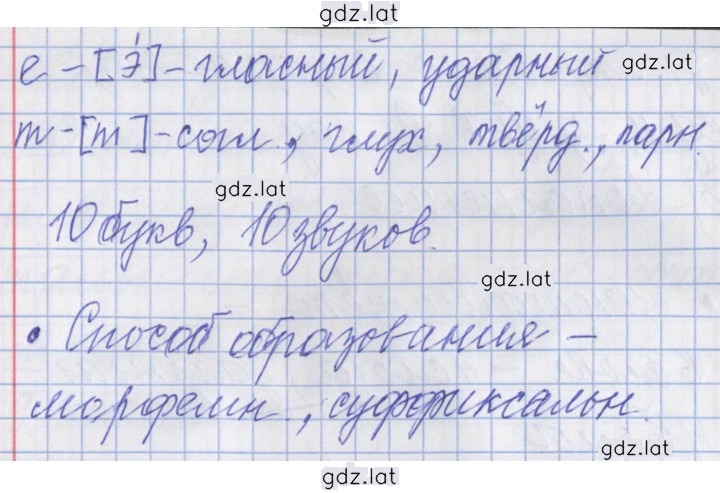 gdz.lat
е - [э́] - гласный, ударный
gdz.lat
т - [т] - согл., глух, твёрд., парн.
gdz.lat
10 букв, 10 звуков.
gdz.lat
• Способ образования -
морфемн., суффиксальн.
gdz.lat
gdz.lat